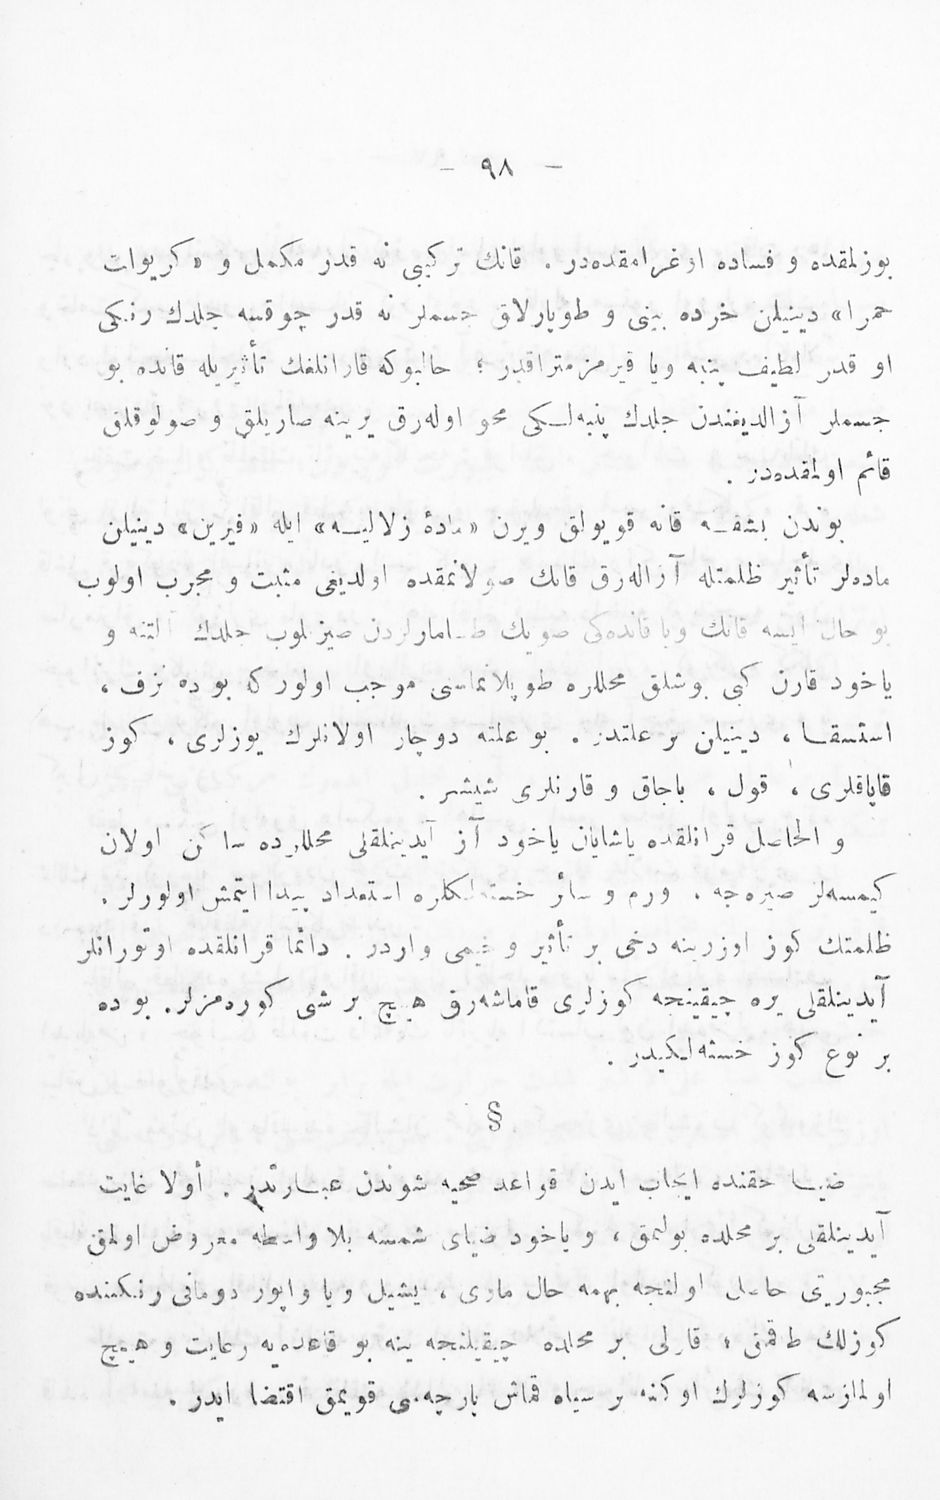 — ٩٨ —
بوزلمقده و فساده اوغرامقده‌در . قانك تركیبی نه قدر مكمل و «كریوات
حمرا» دینیلن خرده بینی و طوپارلاق جسملر نه قدر چوقسه جلدك رنكی
او قدر لطیف پنبه ویا قیرمزمتراقدر ؛ حالبوكه قارانلغك تأثیریله قانده بو
جسملر آزالدیغندن جلدك پنبه‌لكی محو اوله‌رق یرینه صاریلق و صولوقلق
قائم اولمقده‌در .
بوندن بشقه قانه قویولق ویرن «مادهٔ زلالیه» ایله «فیرین» دینیلن
ماده‌لر تأثیر ظلمتله آزاله‌رق قانك صولانمقده اولدیغی مثبت و مجرب اولوب
بو حال ایسه قانك ویا قانده‌كی صویك طامارلردن صیزلوب جلدك آلتنه و
یاخود قارن كبی بوشلق محللره طوپلانماسنی موجب اولور كه بو ده نزف ،
استسقا ، دینیلن بر علتدر . بو علته دوچار اولانلرك یوزلری ، كوز
قاپاقلری ، قول ، باجاق و قارنلری شیشر .
و الحاصل قرانلقده یاشایان یاخود آز آیدینلقلی محللرده ساكن اولان
كیمسه‌لر صیره‌جه ، ورم و سائر خسته‌لكلره استعداد پیدا ایتمش اولورلر .
ظلمتك كوز اوزرینه دخی بر تأثیر وخیمی واردر . دائما قرانلقده اوتورانلر
آیدینلقلی یره چیقینجه كوزلری قاماشه‌رق هیچ بر شی كوره‌مزلر . بو ده
بر نوع كوز خسته‌لكیدر .
§
ضیا حقنده ایجاب ایدن قواعد صحیه شوندن عبارتدر . أولا غایت
آیدینلقلی بر محلده بولنمق ، ویاخود ضیای شمسه بلا واسطه معروض اولمق
مجبوریتی حاصل اولنجه بهمه حال ماوی ، یشیل ویا واپور دومانی رنكنده
كوزلك طاقمنی ؛ قارلی بر محلده چیقیلنجه ینه بو قاعده‌یه رعایت و هیچ
اولمازسه كوزلرك اوكنه بر سیاه قماش پارچه‌سی قویمق اقتضا ایدر .